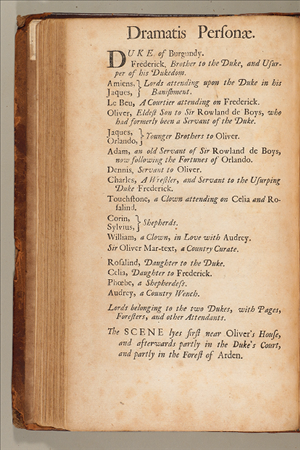 Dramatis Personæ.
DUKE of Burgundy.
Frederick, Brother to the Duke, and Usur-
per of his Dukedom.
Amiens, } Lords attending upon the Duke in his
Jaques, } Banishment.
Le Beu, A Courtier attending on Frederick.
Oliver, Eldest Son to Sir Rowland de Boys, who
had formerly been a Servant of the Duke.
Jaques, } Younger Brothers to Oliver.
Orlando, }
Adam, an old Servant of Sir Rowland de Boys,
now following the Fortunes of Orlando.
Dennis, Servant to Oliver.
Charles, A Wrestler, and Servant to the Usurping
Duke Frederick.
Touchstone, a Clown attending on Celia and Ro-
salind.
Corin, } Shepherds.
Sylvius, }
William, a Clown, in Love with Audrey.
Sir Oliver Mar-text, a Country Curate.
Rosalind, Daughter to the Duke.
Celia, Daughter to Frederick.
Phœbe, a Shepherdess.
Audrey, a Country Wench.
Lords belonging to the two Dukes, with Pages,
Foresters, and other Attendants.
The SCENE lyes first near Oliver's House,
and afterwards partly in the Duke's Court,
and partly in the Forest of Arden.